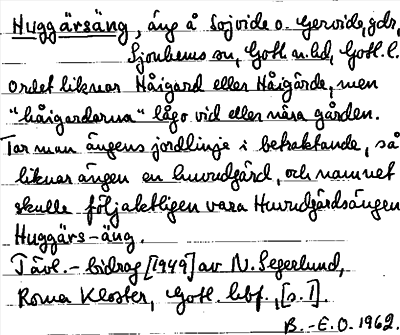 Huggärsäng, äng å Sojvide o. Gervide, gdr,
Sjonhems sn, Gotl. n. hd, Gotl. l.
Ordet liknar Håigard eller Håigårde, men
"håigardarna" lågo vid eller nära gården.
Tar man ängens jordlinje i betraktande, så
liknar ängen en huvudgärd, och namnet
skulle följaktligen vara Huvudgärdsängen
Huggärs-äng.
Tävl.-bidrag [1949] av N. Segerlund,
Roma Kloster, Gotl. hbf., [s. 1].
B.-E.O. 1962.